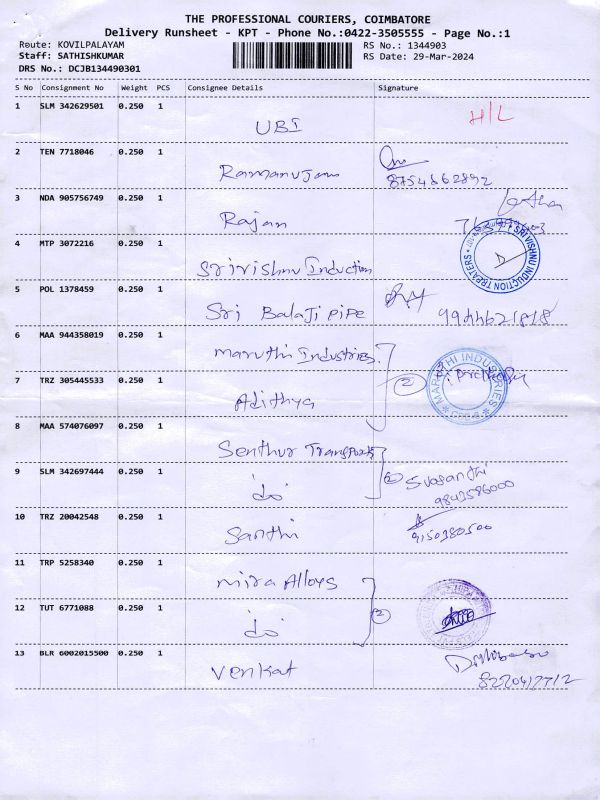 THE PROFESSIONAL COURIERS, COIMBATORE
Delivery Runsheet - KPT - Phone No.:0422-3505555 - Page No.:1
Route: KOVILPALAYAM RS No.: 1344903
Staff: SATHISHKUMAR RS Date: 29-Mar-2024
DRS No.: DCJB134490301
S No Consignment No Weight PCS Consignee Details Signature
1 SLM 342629501 0.250 1 UBI H/L
2 TEN 7718046 0.250 1 Ramanujam
8754662892
3 NDA 905756749 0.250 1 Rajan
4 MTP 3072216 0.250 1 Srivishnu Induction
SRI VISHNU INDUCTION TREATERS
5 POL 1378459 0.250 1 Sri Balaji pipe 9944621818
6 MAA 944358019 0.250 1 maruthi Industries
7 TRZ 305445533 0.250 1 Adithya 2 MARUTHI INDUSTRIES
8 MAA 574076097 0.250 1 Senthur Transports
9 SLM 342697444 0.250 1 do 2 Suganthi
9843586000
10 TRZ 20042548 0.250 1 Santhi 9150380500
11 TRP 5258340 0.250 1 mira Alloys
12 TUT 6771088 0.250 1 do 2
13 BLR 6002015500 0.250 1 Venkat
8220417712